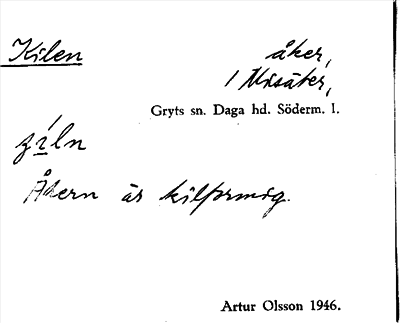 Kilen
åker,
1 Misäter,
Gryts sn. Daga hd. Söderm. l.
Åkern är kilformig.
Artur Olsson 1946.